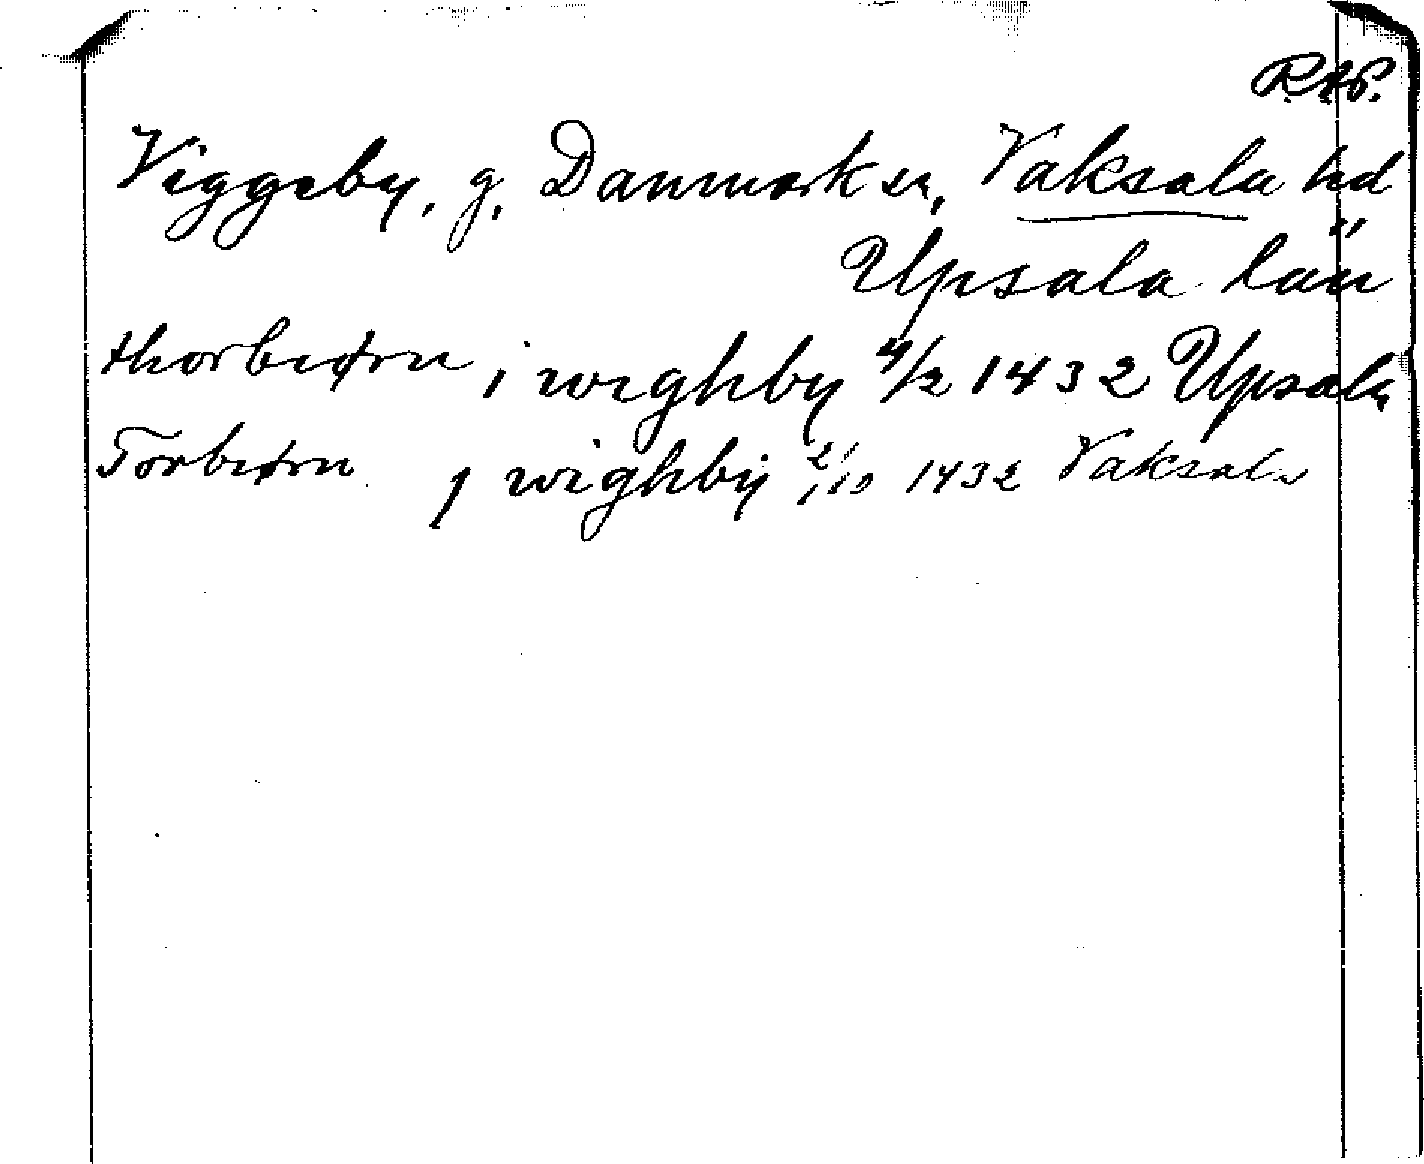 RAP.
Viggeby, g. Danmark sn, Vaksala hd
Upsala län
thorbiørn i wighby 4/2 1432 Upsala
Torbiørn j wighby 21/10 1432 Vaksala